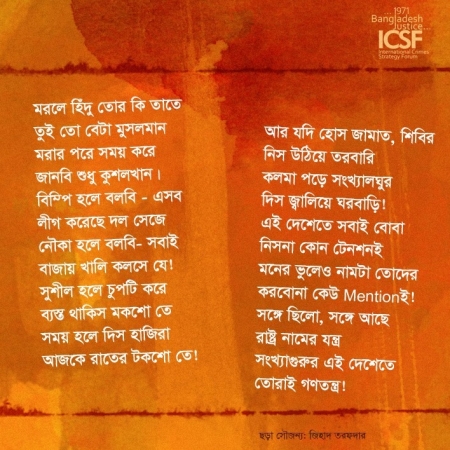 1971
Bangladesh
Justice
ICSF
International Crimes
Strategy Forum
মরলে হিঁদু তোর কি তাতে
তুই তো বেটা মুসলমান
মরার পরে সময় করে
জানবি শুধু কুশলখান।
বিম্পি হলে বলবি - এসব
লীগ করেছে দল সেজে
নৌকা হলে বলবি- সবাই
বাজায় খালি কলসে যে!
সুশীল হলে চুপটি করে
ব্যস্ত থাকিস মকশো তে
সময় হলে দিস হাজিরা
আজকে রাতের টকশো তে!
আর যদি হোস জামাত, শিবির
নিস উঠিয়ে তরবারি
কলমা পড়ে সংখ্যালঘুর
দিস জ্বালিয়ে ঘরবাড়ি!
এই দেশেতে সবাই বোবা
নিসনা কোন টেনশনই
মনের ভুলেও নামটা তোদের
করবোনা কেউ Mentionই!
সঙ্গে ছিলো, সঙ্গে আছে
রাষ্ট্র নামের যন্ত্র
সংখ্যাগুরুর এই দেশেতে
তোরাই গণতন্ত্র!
ছড়া সৌজন্য: জিহাদ তরফদার